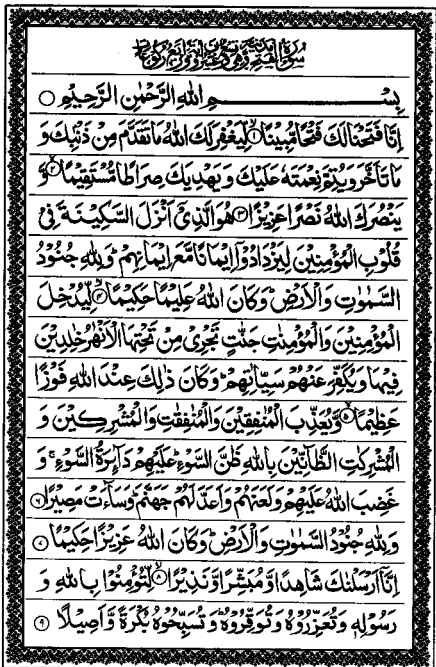 سُوْرَةُ الْفَتْحِ مَدَنِيَّةٌ وَّهِيَ
بِسْمِ اللهِ الرَّحْمٰنِ الرَّحِيْمِ
اِنَّا فَتَحْنَا لَكَ فَتْحًا مُّبِيْنًا ۱ لِّيَغْفِرَ لَكَ اللهُ مَا تَقَدَّمَ مِنْ ذَنْۢبِكَ وَ
مَا تَاَخَّرَ وَيُتِمَّ نِعْمَتَهٗ عَلَيْكَ وَيَهْدِيَكَ صِرَاطًا مُّسْتَقِيْمًا ۲ وَّ
يَنْصُرَكَ اللهُ نَصْرًا عَزِيْزًا ۳ هُوَ الَّذِيْۤ اَنْزَلَ السَّكِيْنَةَ فِيْ
قُلُوْبِ الْمُؤْمِنِيْنَ لِيَزْدَادُوْۤا اِيْمَانًا مَّعَ اِيْمَانِهِمْ ؕ وَلِلّٰهِ جُنُوْدُ
السَّمٰوٰتِ وَالْاَرْضِ ؕ وَكَانَ اللهُ عَلِيْمًا حَكِيْمًا ۴ لِّيُدْخِلَ
الْمُؤْمِنِيْنَ وَالْمُؤْمِنٰتِ جَنّٰتٍ تَجْرِيْ مِنْ تَحْتِهَا الْاَنْهٰرُ خٰلِدِيْنَ
فِيْهَا وَيُكَفِّرَ عَنْهُمْ سَيِّاٰتِهِمْ ؕ وَكَانَ ذٰلِكَ عِنْدَ اللهِ فَوْزًا
عَظِيْمًا ۵ وَّيُعَذِّبَ الْمُنٰفِقِيْنَ وَالْمُنٰفِقٰتِ وَالْمُشْرِكِيْنَ وَ
الْمُشْرِكٰتِ الظَّآنِّيْنَ بِاللهِ ظَنَّ السَّوْءِ ؕ عَلَيْهِمْ دَآئِرَةُ السَّوْءِ ۚ وَ
غَضِبَ اللهُ عَلَيْهِمْ وَلَعَنَهُمْ وَاَعَدَّ لَهُمْ جَهَنَّمَ ؕ وَسَآءَتْ مَصِيْرًا ۶
وَلِلّٰهِ جُنُوْدُ السَّمٰوٰتِ وَالْاَرْضِ ؕ وَكَانَ اللهُ عَزِيْزًا حَكِيْمًا ۷
اِنَّاۤ اَرْسَلْنٰكَ شَاهِدًا وَّمُبَشِّرًا وَّنَذِيْرًا ۸ لِّتُؤْمِنُوْا بِاللهِ وَ
رَسُوْلِهٖ وَتُعَزِّرُوْهُ وَتُوَقِّرُوْهُ ؕ وَتُسَبِّحُوْهُ بُكْرَةً وَّاَصِيْلًا ۹